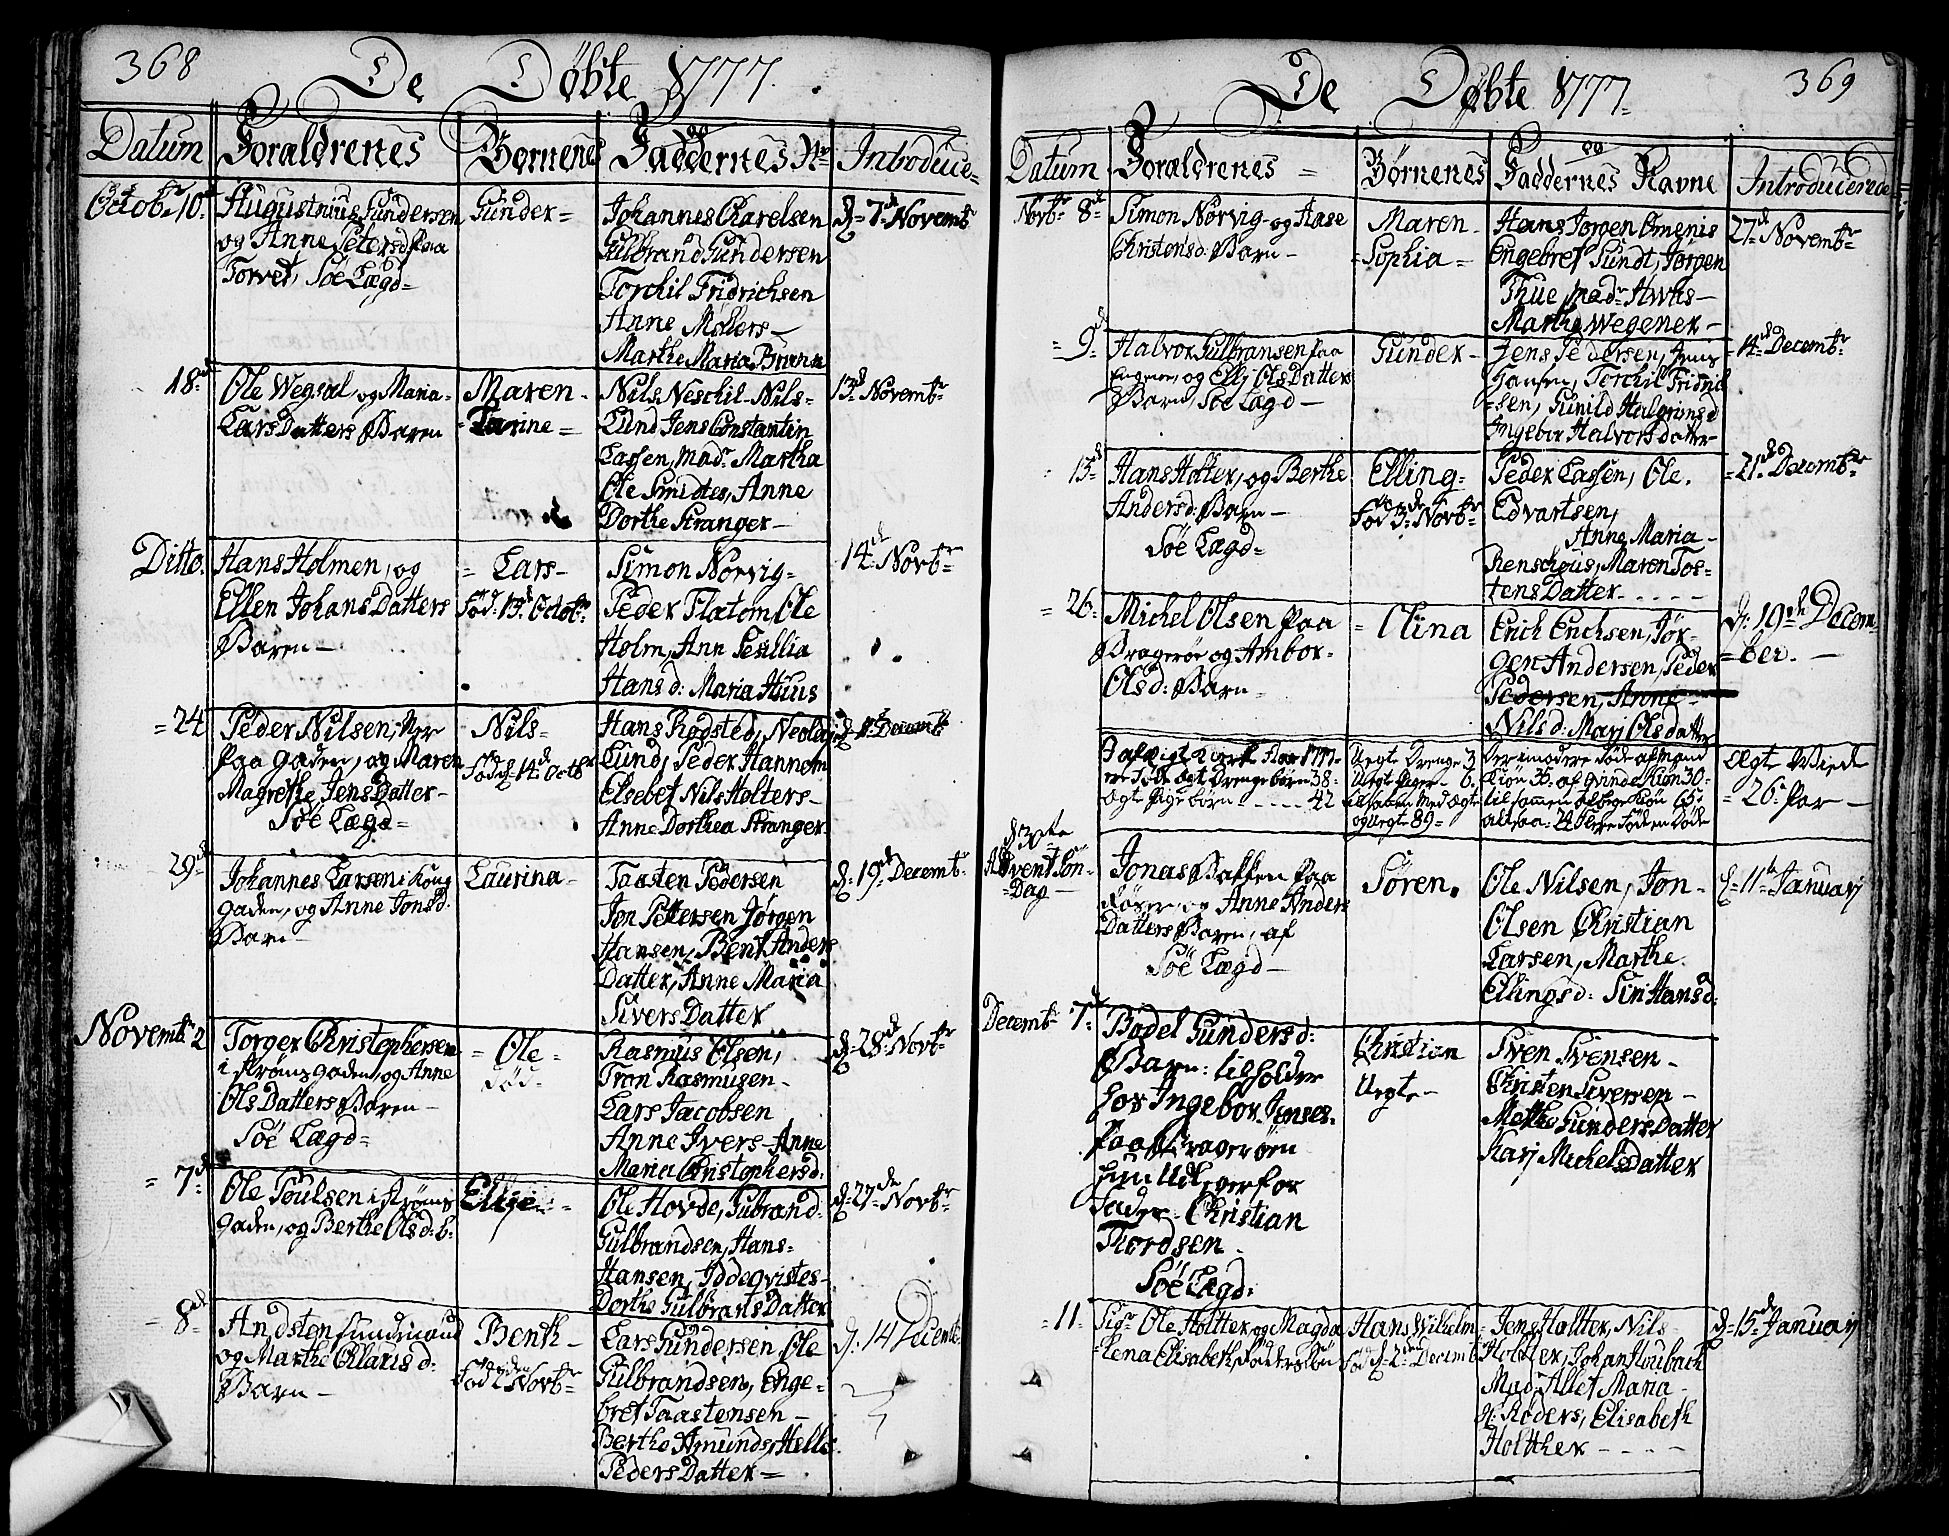 368
De Døbte 1777.
Datum Foraldrenes Børnenes Faddernes N: Introduce=
Octobr 10= Augustnius Gundersen
og Anne Petersd paa
Torvet, Søe Lægd=
Gunder=
Johannes Carelsen
Gulbrand Gundersen
Torchil Fridrichsen
Anne Møllers—
Marthe Maria Bruun
d= 7d Novembr
18=d Ole Wegsal og Maria=
Lars Datters Barn
Maren=
=Tarine=
Nils Neschil=Nils=
Lund Jens Constantin
Lassen, Mad: Martha
Ole Smidtes, Anne
Dorthe Stranger—
13d Novembr
Ditto. Hans Holmen, og
Ellen Johans Datters
Barn—
=Lars—
Fød: 13d Octobr
Simon Nørvig=
Peder Flatom Ole
Holm, Ann Sesillia
Hans d: Maria Huus
14d Novbr=
=24 Peder Nilsen,
paa gaden, og Maren
Magrethe Jens Datter—
Søe Lægd=
Nils=
Fød d=14d Octbr
Hans Rødsted, Neolai
Lund, Peder Hannem
Elsebet Nils Holters—
Anne Dorthea Stranger
Decembr
29=d Johannes Larsen i Kong
gaden, og Anne Jonsd:
Barn—
Laurina—
Taasten Pedersen
Jon Pettersen Jørgen
Hansen, Benth Anders
Datter, Anne Maria
Sivers Datter
d: 19d Decembr
Novembr 2 Torger Christophersen
i strømsgaden, og Anne
Ols Datters Barn—
Søe Lægd=
=Ole=
Fød=
Rasmus Olsen,
Tron Rasmusen—
Lars Jacobsen
Anne Ivers—Anne
Maria Christophersd:
d: 28d Novbr
=7=d Ole Poulsen i strøms
gaden, og Berthe Olsd: b=
Elise
Ole Hovde, Gubrand=
Gulbrandsen, Hans=
Hansen, Iddeqvistes—
Dorthe Gulbrants Datter
d=27de Novbr
—8=de An,dsten Gundmund
og Marthe Clarisd:
Barn—
Benth—
Fød 2den Novbr
Lars Gundersen, Ole
Gulbrandsen, Enge=
bret Taastensen—
Berthe Amunds, Helle
Peders Datter=
d: 14 Decembr
369
De Døbte 1777.
Datum Foraldrenes= Børnenes Faddernes Navne Introducerede
Novbr 8=d Simon Nørvig=og Aase
Christensd: Barn—
Maren—
=Sophia=
Hans Jørgen Omenis
Engebret Sundt, Jørgen
Thue, Mad: Hwas—
Marthe Wegener—
27=d Novembr
=9=d Halvor Gulbransen paa
Engene, og Ellj Ols Datters
Barn, Søe Lægd—
Gunder—
Jens Pedersen, Jens
Hansen, Torchil Fridrich
=sen, Gunild Halgrimsd
Ingebor Halvors datter
14=d Decembr
13=d Hans Holter, og Berthe
Andersd: Barn—
Søe Lægd=
Elling=
Fød 3=d Novbr=
Peder Lassen, Ole.
Edvartsen,
Anne Maria—
Renschous, Maren Tos=
tens Datter.----
=21=d Decembr
=26= Michel Olsen paa
Bragerøe og Ambor=
Olsd: Barn—
=Olina
Erich Erichsen, Jør=
gen Andersen, Peder
Pedersen, Anne—
Nilsd: Marj Olsdatter
d: 19de Decem=
=ber.—
I afvigte Kirke Aar 1777=
ere fødte ægte Drenge børn 38=
Ægte Pige børn----42
Uegte Drenge 3
Uegte Piger—6
tilsamen med ægte
og uegte 89=
Derimod ere Døde af Mand
Kiøn 35. af Qvinde Kiøn 30=
tilsammen af begge Kiøn 65=
altsaa=24 flere Fødte end Døde
Ægte Viede
=26=Par—
d 3te
Advent Søn=
=Dag—
Jonas Bakken paa
og Anne Anders
Datters Barn, af
Søe Lægd—
Søren.
Ole Nilsen, Jon=
Olsen Christian
Larsen, Marthe.
Ellingsd: Siri Hansd:
d=11te Januarj
Decembr 7=d Bodel Gundersd:
Barn: tilholder
hos Ingebor Jenses.
paa Bragerøen
hun Udlegger for
Fader= Christian
Thordsen—
Søe Lægd:
Christian
Uegte—
Sven Svensen—
Christen Siversen—
Methe Gunders Datter
Karj Michels Datter
=11= Sigr Ole Holtter og Magda
=lena Elisabeth
Hans Wilhelm
Fød d=2den Decemb
=Jens Holtter, Nils—
Holtter, Johan Houbach
Mad: Allet Maria—
Røders, Elisabeth
Holtther----
d=15d Januarj